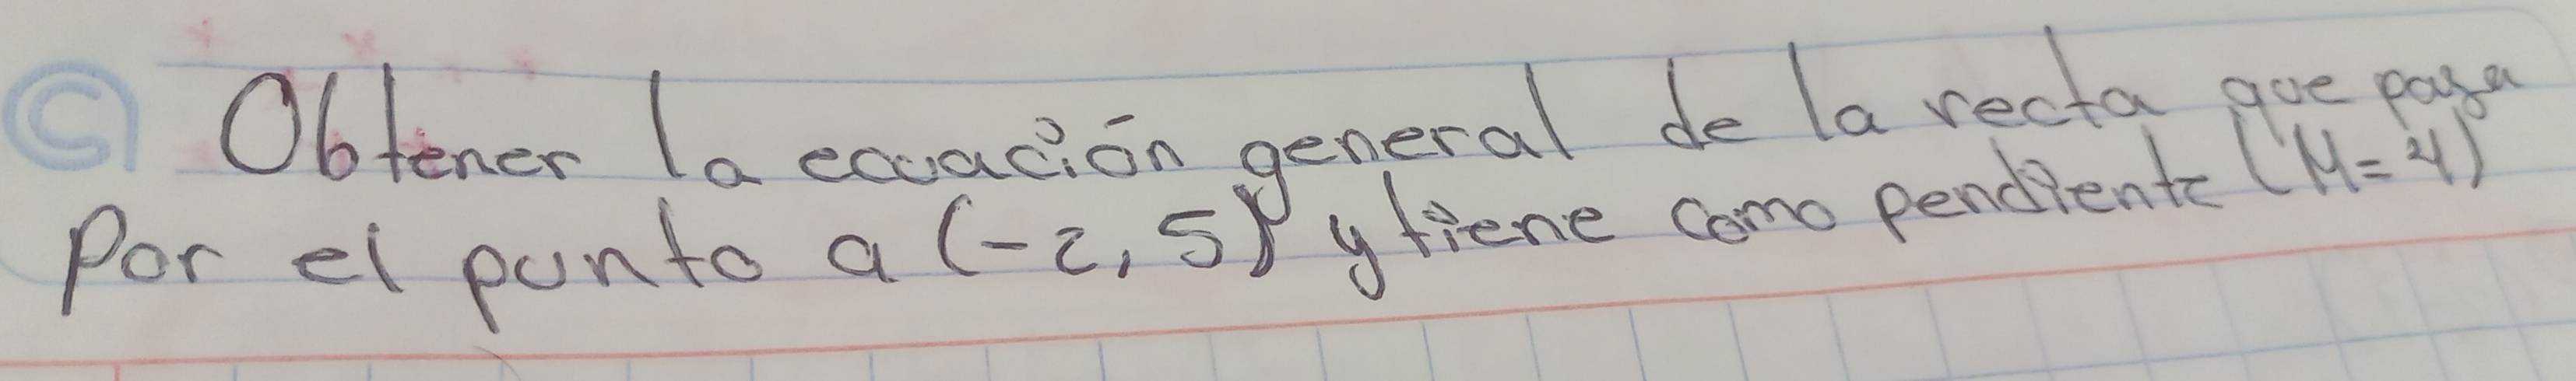 Obtener la ecuación general de la recta que pasa
Por el punto a (-2, 5) y tiene como pendiente (M=4)